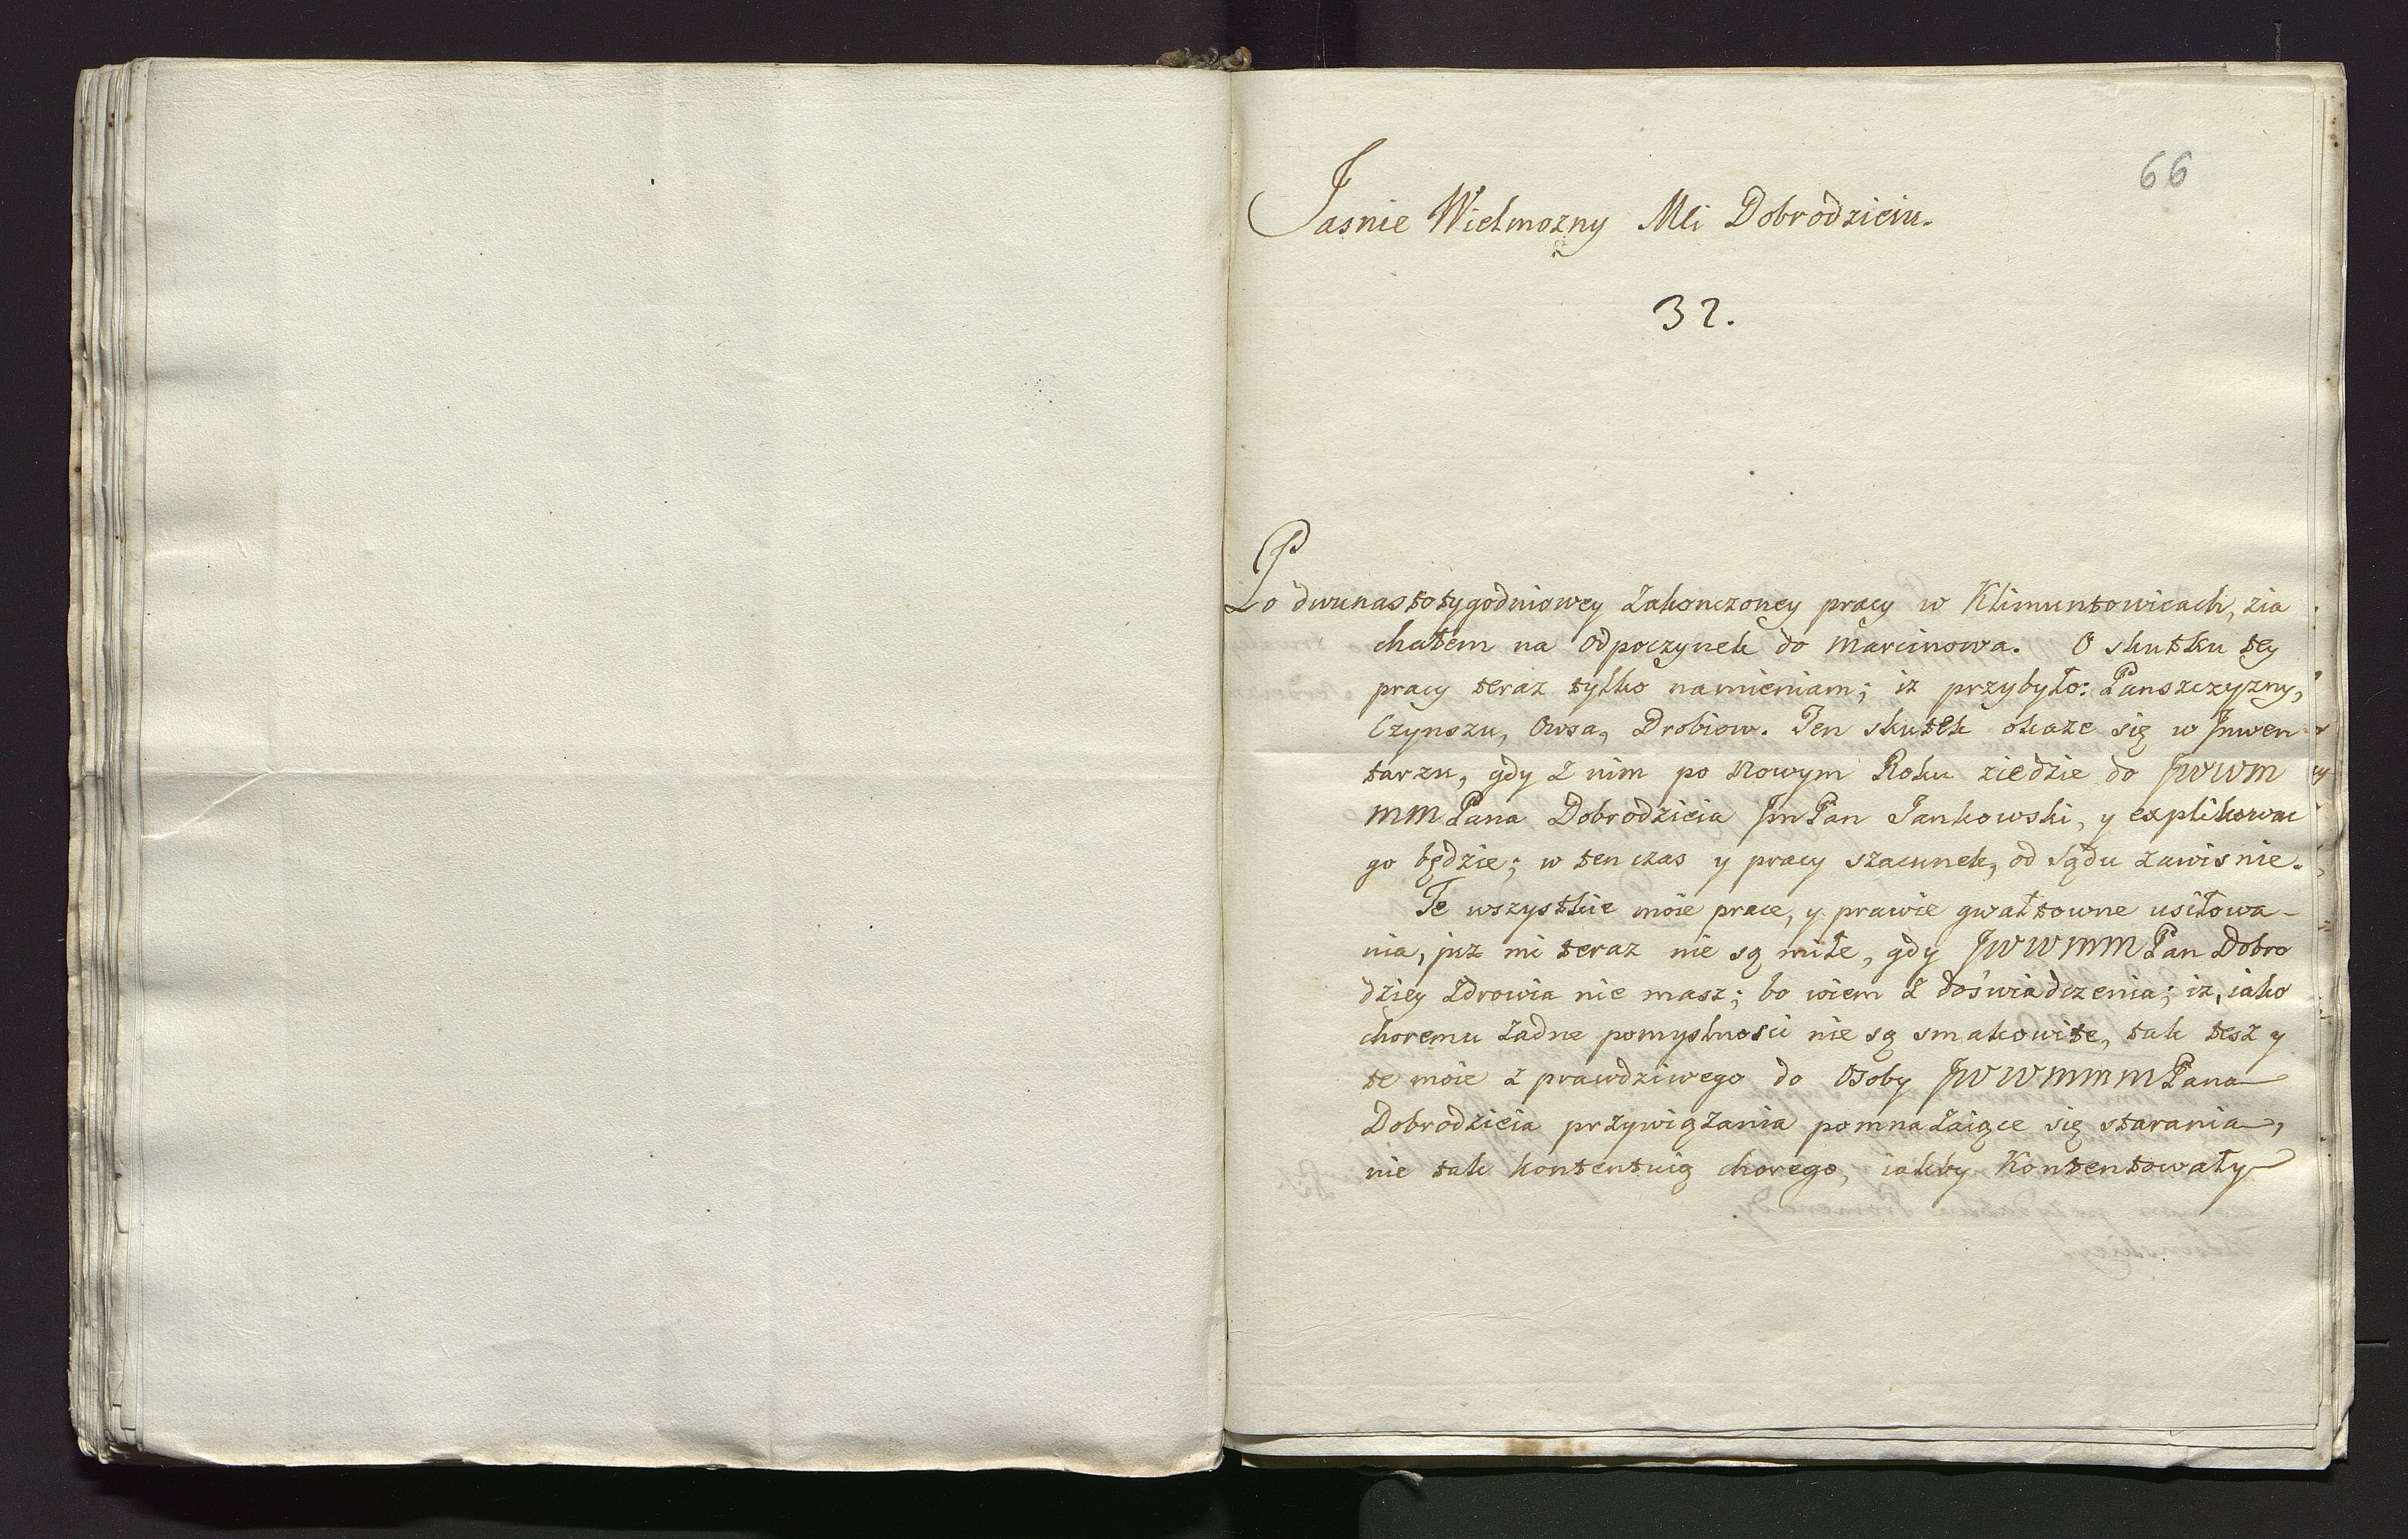 66
Jasnie Wielmozny Mci Dobrodzieiu.
32.
Po dwunastotygodniowey Zakonczoney pracy w Klimuntowicach, zia
chałem na Odpoczynek do Marcinowa. O skutku tey
pracy teraz tylko namieniam; iz przybyło: Panszczyzny,
Czynszu, Owsa, Drobiow. Ten skutek okaze się w Jnwen
tarzu, gdy z nim po Nowym Roku ziedzie do JWWM
MM Pana Dobrodzieia Jm Pan Jankowski, y explikowac
go będzie; w ten czas y pracy szacunek, od sądu zawisnie.
Te wszystkie moie prace, y prawie gwałtowne usiłowa-
nia, juz mi teraz nie są miłe, gdy JWWMM Pan Dobro
dziey Zdrowia nie masz; bo wiem z doświadczenia; iz, iako
choremu Zadne pomyslnosci nie są smakowite, tak tesz y
te moie z prawdziwego do Osoby JWWMMM Pana
Dobrodzieia przywiązania pomnazaiące się starania,
nie tak kontentuią chorego, iakby Kontentowały